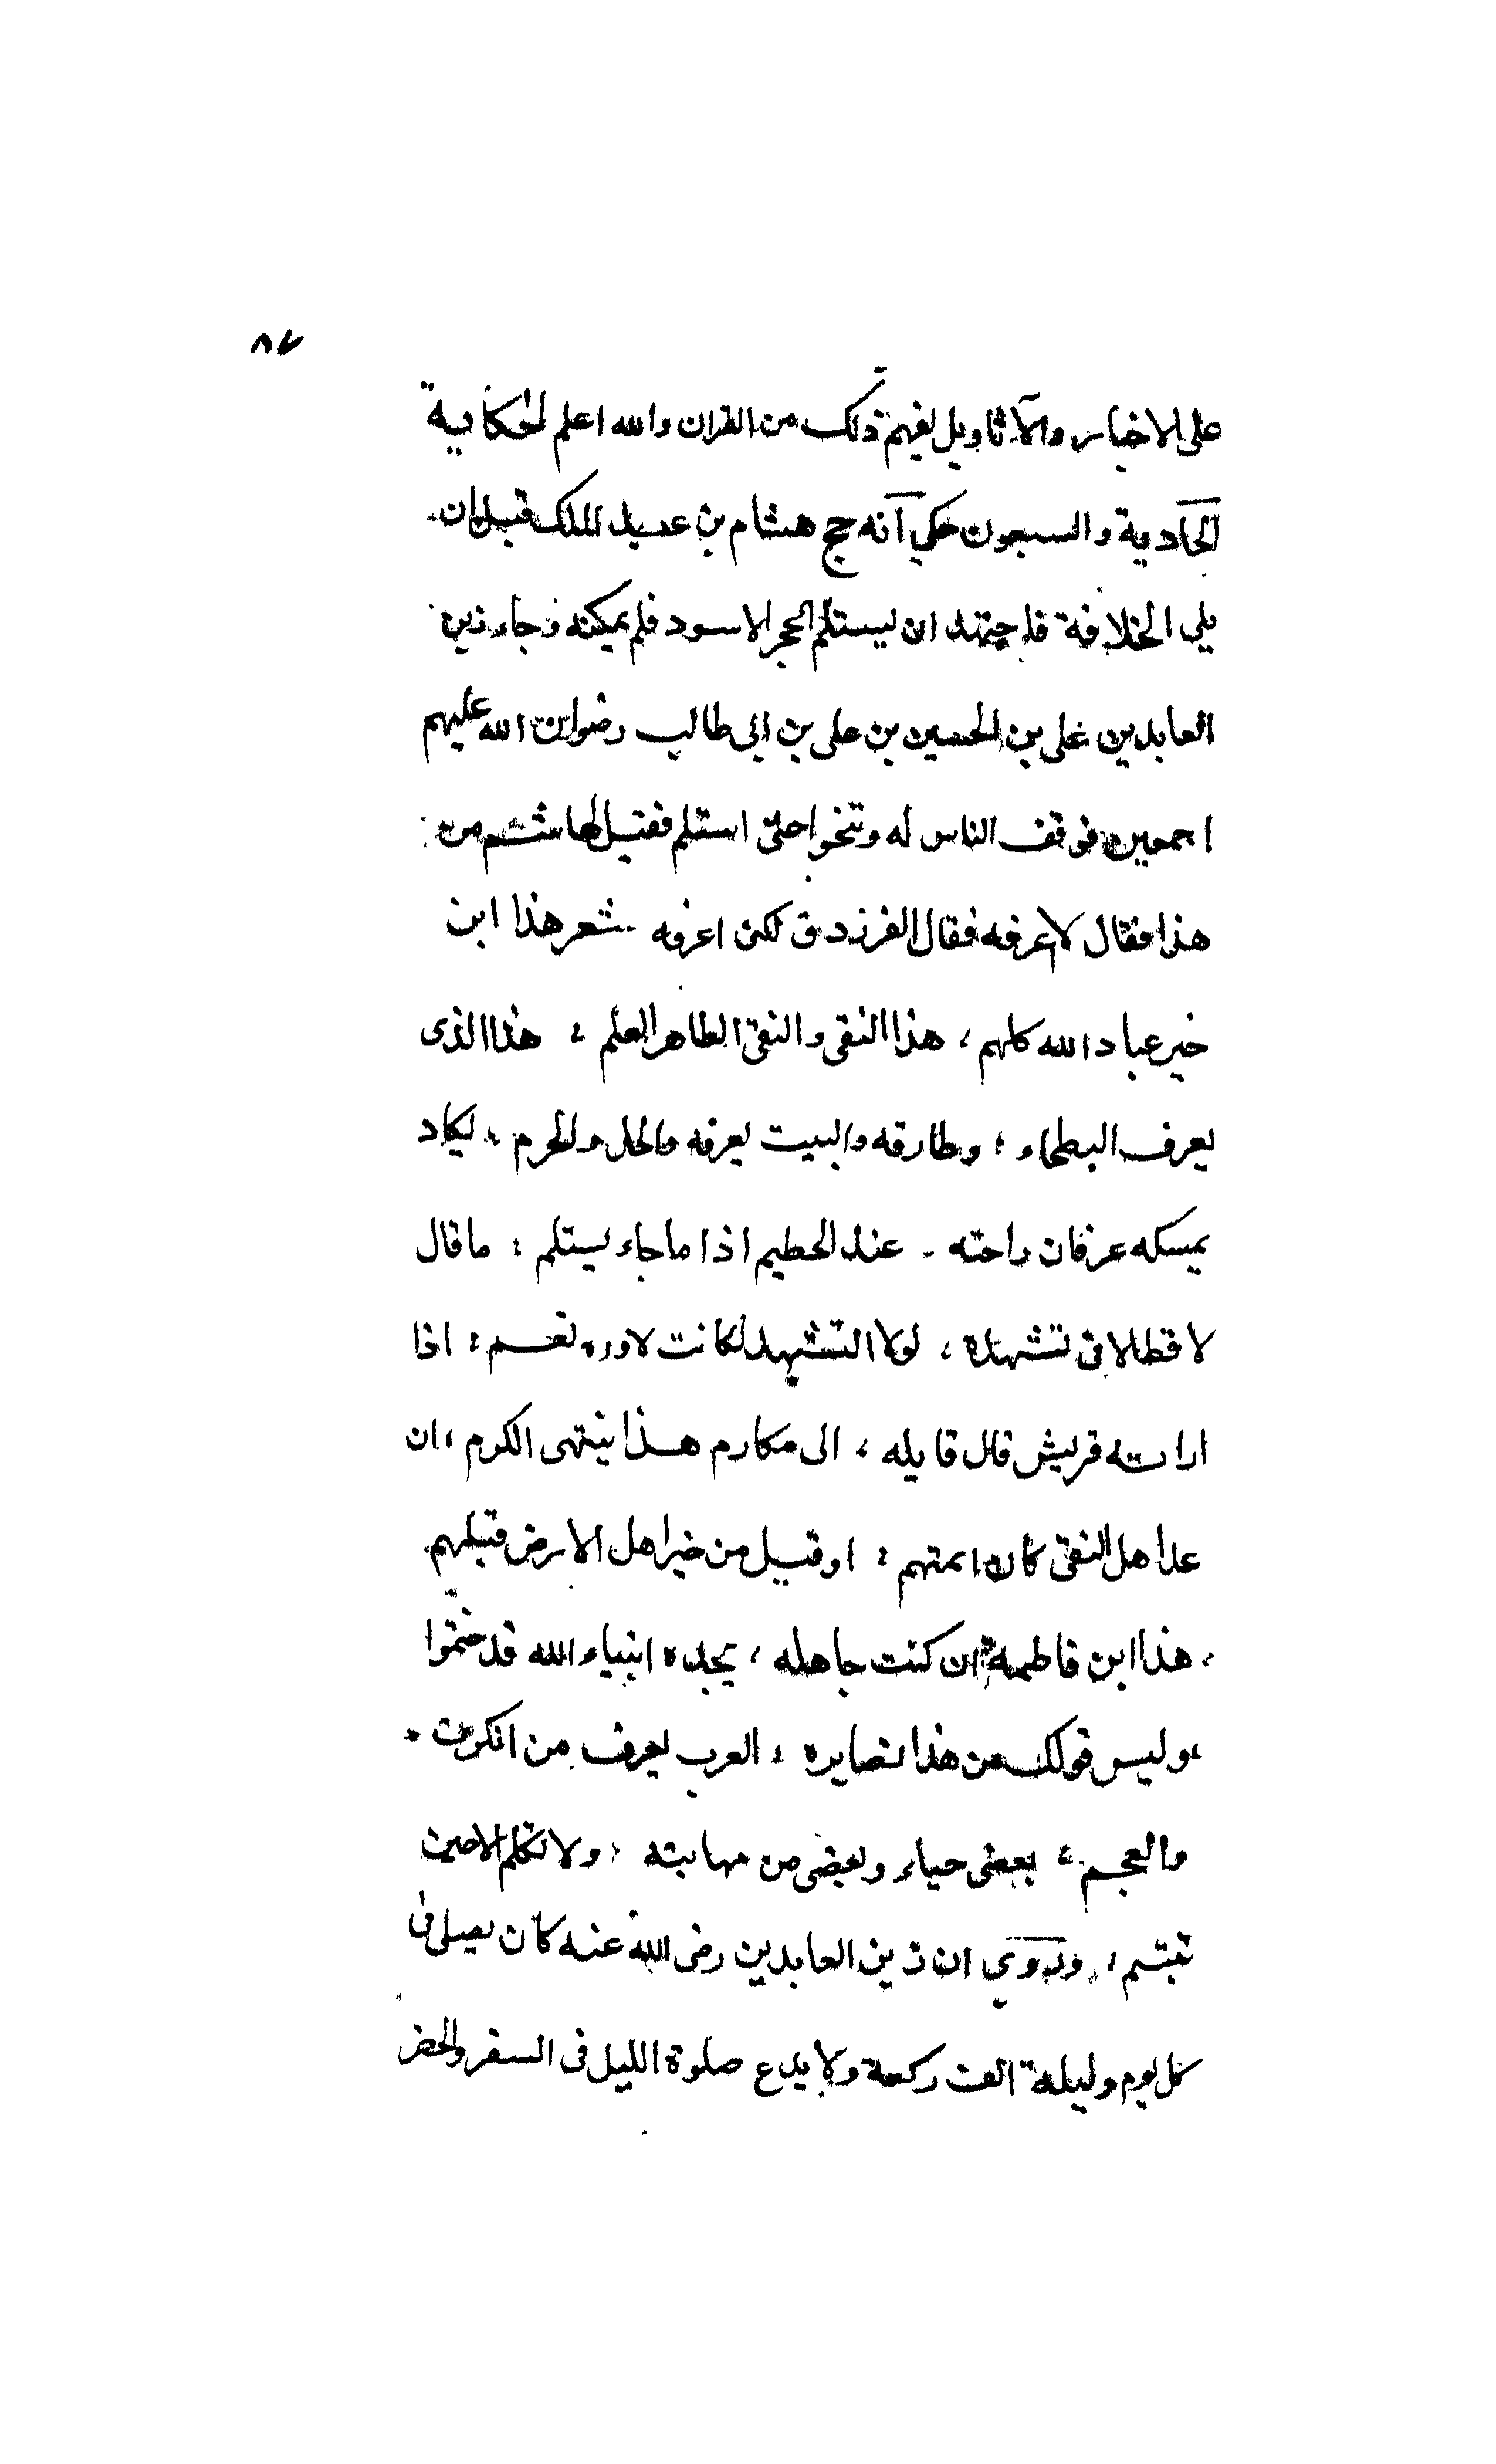 ٨٧
على الاخبار والآثاويل لفهم ذلك من القران والله اعلم الحكاية
الحادية والسبعون حكي آنه حج هشام بن عبد الملك قبل ان
يلي الخلافة فاجتهد ان ليستلم الحجر الاسود فلم يمكنه وجاء زين
العابدين على بن الحسين بن على بن ابى طالب رضوان الله عليهم
اجمعين فوقف الناس له وتنحوا حتى استلم فقيل لهاشم من
هذا فقال لا اعرفه فقال الفرزدق لكن اعرفه شعر هذا ابن
خير عباد الله كلهم ، هذا النقى والتقى الطاهر العلم ؛ هذا الذى
يعرف البطحاء ؛ وطارقه والبيت يعرفه والحل والحرم ، ليكاد
يمسكه عرفان راحته - عند الحطيم اذا ما جاء ليستلم ؛ ما قال
لا قط الا فى تشهده ، لولا التشهد لكانت لاوره نعم ؛ اذا
اراته قريش قال قايله ، الى مكارم هذا ينتهى الكرم ، ان
عد اهل التقى كان ائمتهم ؛ او قيل من خير اهل الارض قبلهم
، هذا ابن فاطمة ان كنت جاهله ، بجده انبياء الله قد ختموا
، وليس قولك من هذا بضايره ، العرب يعرف من انكرت
والعجم ، بعضى حياء وبعضى من مهابته ، ولا تكلم الا حين
تبتسم ، وروي ان زين العابدين رضى الله عنه كان يصلى فى
كل يوم وليلة الف ركعة ولا يدع صلوة الليل فى السفر والحضر